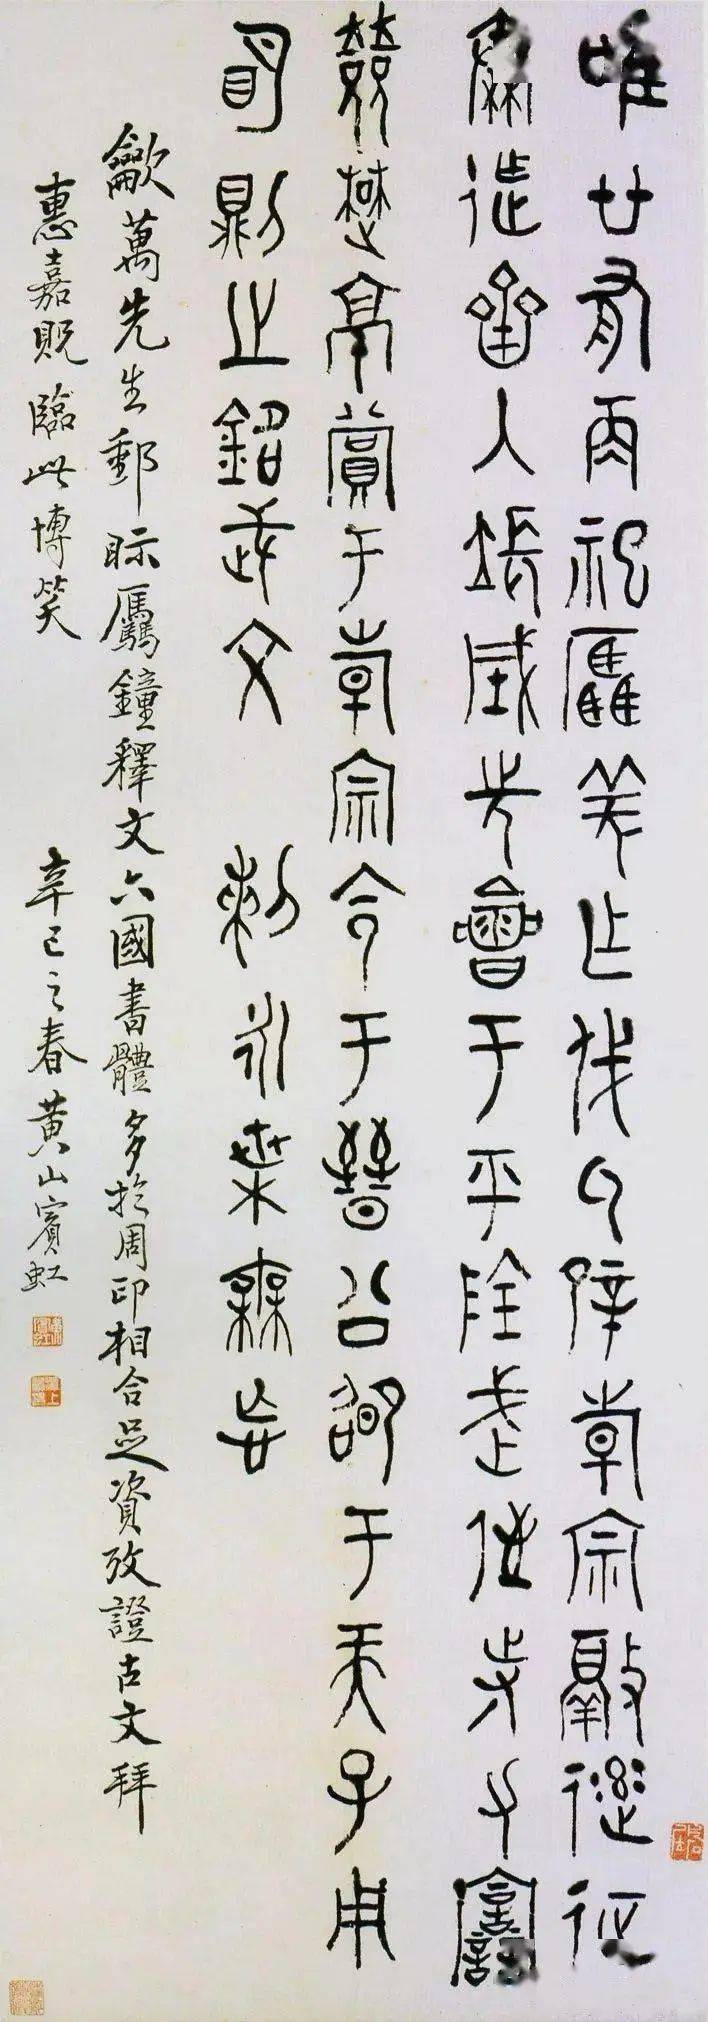 唯廿又再祀驫羌乍戎氒辟倝宗敲達征
秦迮齊入張城先會于平陰武侄寺力
楚京賞于倝宗令于晉公卲于天子用
明則之銘武文 剌永枼無忘
萬先生郵眎驫鐘釋文六國書體多於周印相合足資攷證古文拜
惠嘉貺臨此博笑 辛巳之春黃山賓虹